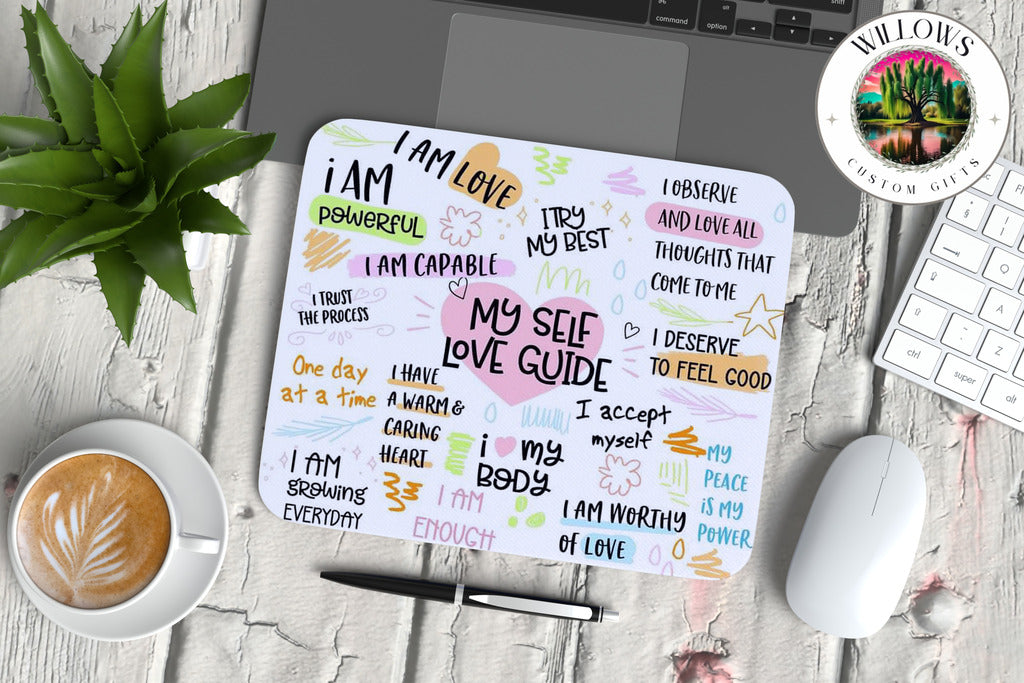 command
option
alt
shift
WILLOWS
CUSTOM GIFTS
I AM LOVE
i AM
POWERFUL
I AM CAPABLE
I TRUST
THE PROCESS
I TRY
MY BEST
I OBSERVE
AND LOVE ALL
THOUGHTS THAT
COME TO ME
MY SELF
LOVE GUIDE
I DESERVE
TO FEEL GOOD
One day
at a time
I HAVE
A WARM &
CARING
HEART
I accept
myself
i my
BODY
I AM
growing
EVERYDAY
I AM
ENOUGH
I AM WORTHY
OF LOVE
MY
PEACE
iS MY
POWER
Q
A
Z
ctrl
super
alt